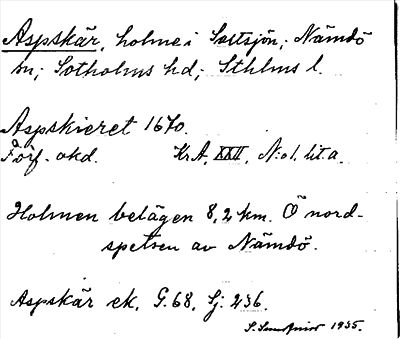 Aspskär, holme i Saltsjön; Nämdö
sn; Sotholms hd; Sthlms l.
Aspskieret 1670.
Förf. okd. KrA, XXII, N:o 1. lit. a.
Holmen belägen 8,2 km. Ö nord-
spetsen av Nämdö.
Aspskär ek. G. 68, Sj: 236.
1935.